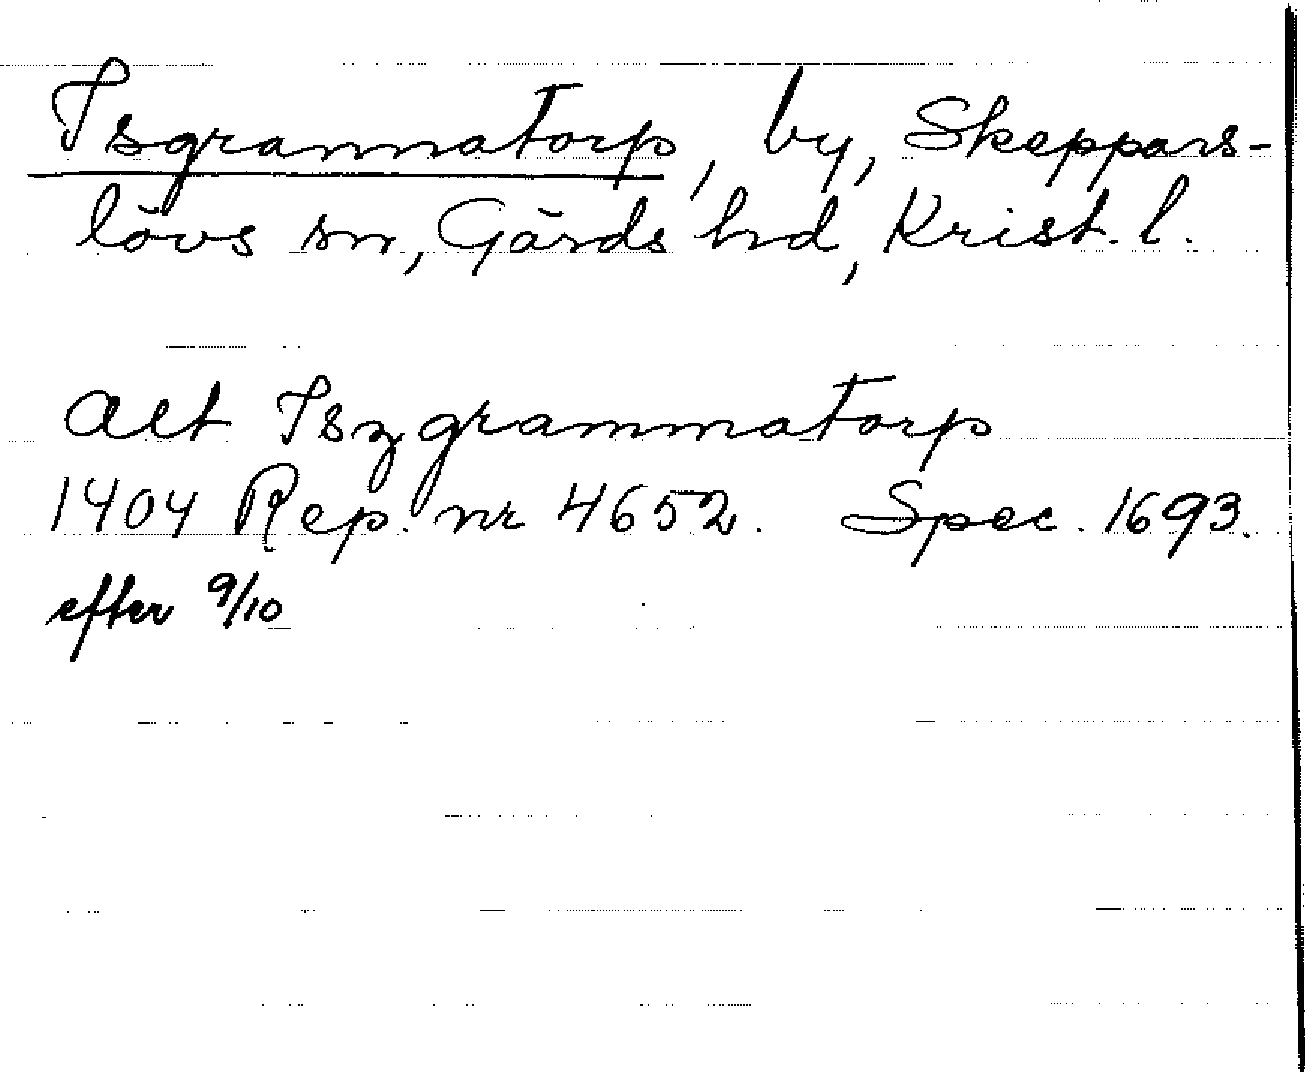 Isgrannatorp, by, Skeppars-
lövs sn, Gärds hd, Krist. l.
alt Iszgrammatorp
1404 Rep. nr 4652. Spec. 1693.
efter 9/10